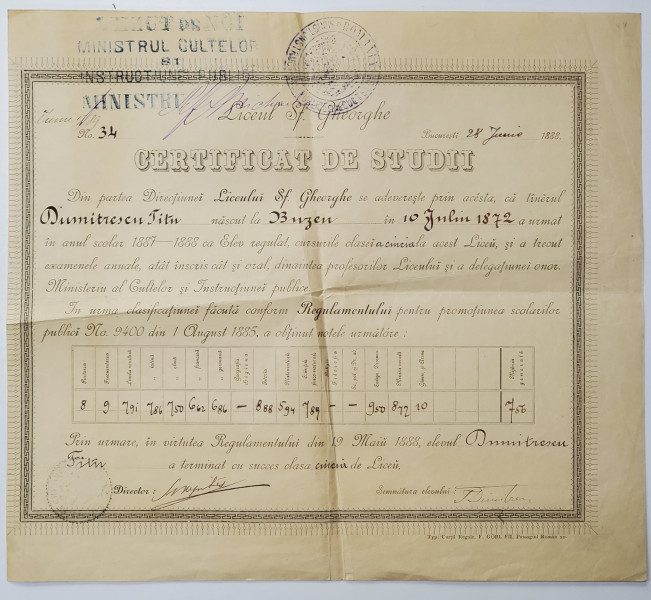 VĚZUT DE NOI
MINISTRUL CULTELOR
ȘI
INSTRUCȚIUNEI PUBLICE
MINISTRU
ROMANIEI
Liceul Sf. Gheorghe
No. 34 București 28 Junio 1888.
CERTIFICAT DE STUDII
Din partea Direcțiunei Liceului Sf. Gheorghe se adeverește prin acésta, că tînĕrul
Dumitrescu Titu născut la Buzeu în 10 Juliu 1872 a urmat
în anul scolar 1887—1888 ca Elev regulat, cursurile clasei a cincia la acest Liceŭ, și a trecut
examenele anuale, atât inscris cât și oral, dinaintea profesorilor Liceului și a delegațiunei onor.
Ministeriu al Cultelor și Instrucțiunei publice.
In urma clasificațiunei făcută conform Regulamentului pentru promoțiunea scolarilor
publici No. 9400 din 1 August 1885, a obținut notele următóre:
Purtarea Frecuentarea Limba română " latină " elină " francesă " germană Geografia Religiea Istoria Matematica Fisica Media generală
8 9 791 786 750 662 686 - 888 594 789 - - 950 872 10 756
Prin urmare, în virtutea Regulamentului din 19 Maiŭ 1888, elevul Dumitrescu
Titu a terminat cu succes clasa cincia de Liceŭ.
Director: Semnătura elevului:
Typ. Curții Regale, F. GÖBL FII, Passagiul Român